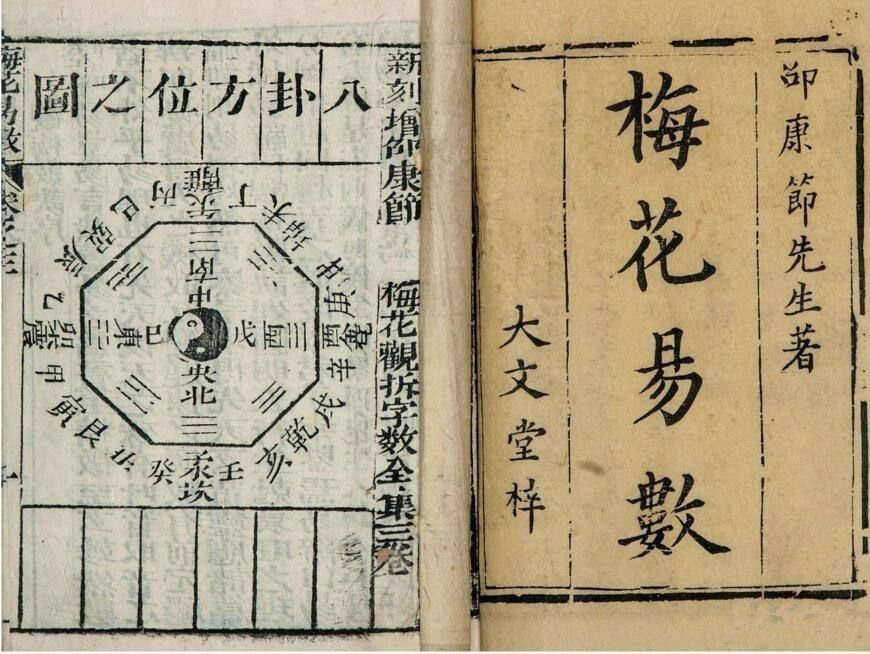 邵康節先生著
梅花易數
大文堂梓
新刻增邵康節 梅花觀拆字數全集三卷
八卦方位之圖
丙
離
丁
未坤申
庚
酉兌
辛
戌乾亥
壬
坎
癸
丑艮寅
甲
卯震
乙
辰巽巳
南
中
東
戊
酉
央
北
梅花易數